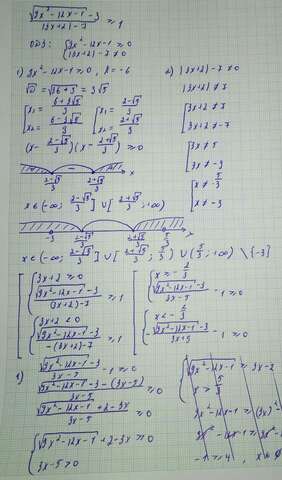 √(9x²-12x-1) -3 / (|3x+2|-7) ≥ 1
ОДЗ: { 9x²-12x-1 ≥ 0
{ |3x+2|-7 ≠ 0
1) 9x²-12x-1 ≥ 0, k = -6
√D = √(36+9) = 3√5
[ x₁ = (6+3√5)/9 [ x₁ = (2-√5)/3
[ x₂ = (6-3√5)/9 [ x₂ = (2+√5)/3
(x - (2-√5)/3)(x - (2+√5)/3) ≥ 0
(2-√5)/3 (2+√5)/3 x
x ∈ (-∞; (2-√5)/3] ∪ [(2+√5)/3; +∞)
2) |3x+2| -7 ≠ 0
|3x+2| ≠ 7
[ 3x+2 ≠ 7
[ 3x+2 ≠ -7
[ 3x ≠ 5
[ 3x ≠ -9
[ x ≠ 5/3
[ x ≠ -3
-3 (2-√5)/3 (2+√5)/3 5/3 x
x ∈ (-∞; (2-√5)/3] ∪ [(2+√5)/3; 5/3) ∪ (5/3; +∞) \ {-3}
[ { 3x+2 ≥ 0
{ (√(9x²-12x-1) -3)/((3x+2)-7) ≥ 1
{ 3x+2 < 0
{ (√(9x²-12x-1) -3)/(-(3x+2)-7) ≥ 1
[ { x ≥ -2/3
{ (√(9x²-12x-1) -3)/(3x-5) -1 ≥ 0
{ x < -2/3
{ -(√(9x²-12x-1) -3)/(3x+9) -1 ≥ 0
1) (√(9x²-12x-1) -3)/(3x-5) -1 ≥ 0
(√(9x²-12x-1) -3 -(3x-5))/(3x-5) ≥ 0
(√(9x²-12x-1) +2-3x)/(3x-5) ≥ 0
{ √(9x²-12x-1) +2-3x ≥ 0
{ 3x-5 > 0
{ √(9x²-12x-1) ≥ 3x-2
{ x > 5/3
9x²-12x-1 ≥ (3x)²
-1 ≥ 4, x ∈ ∅